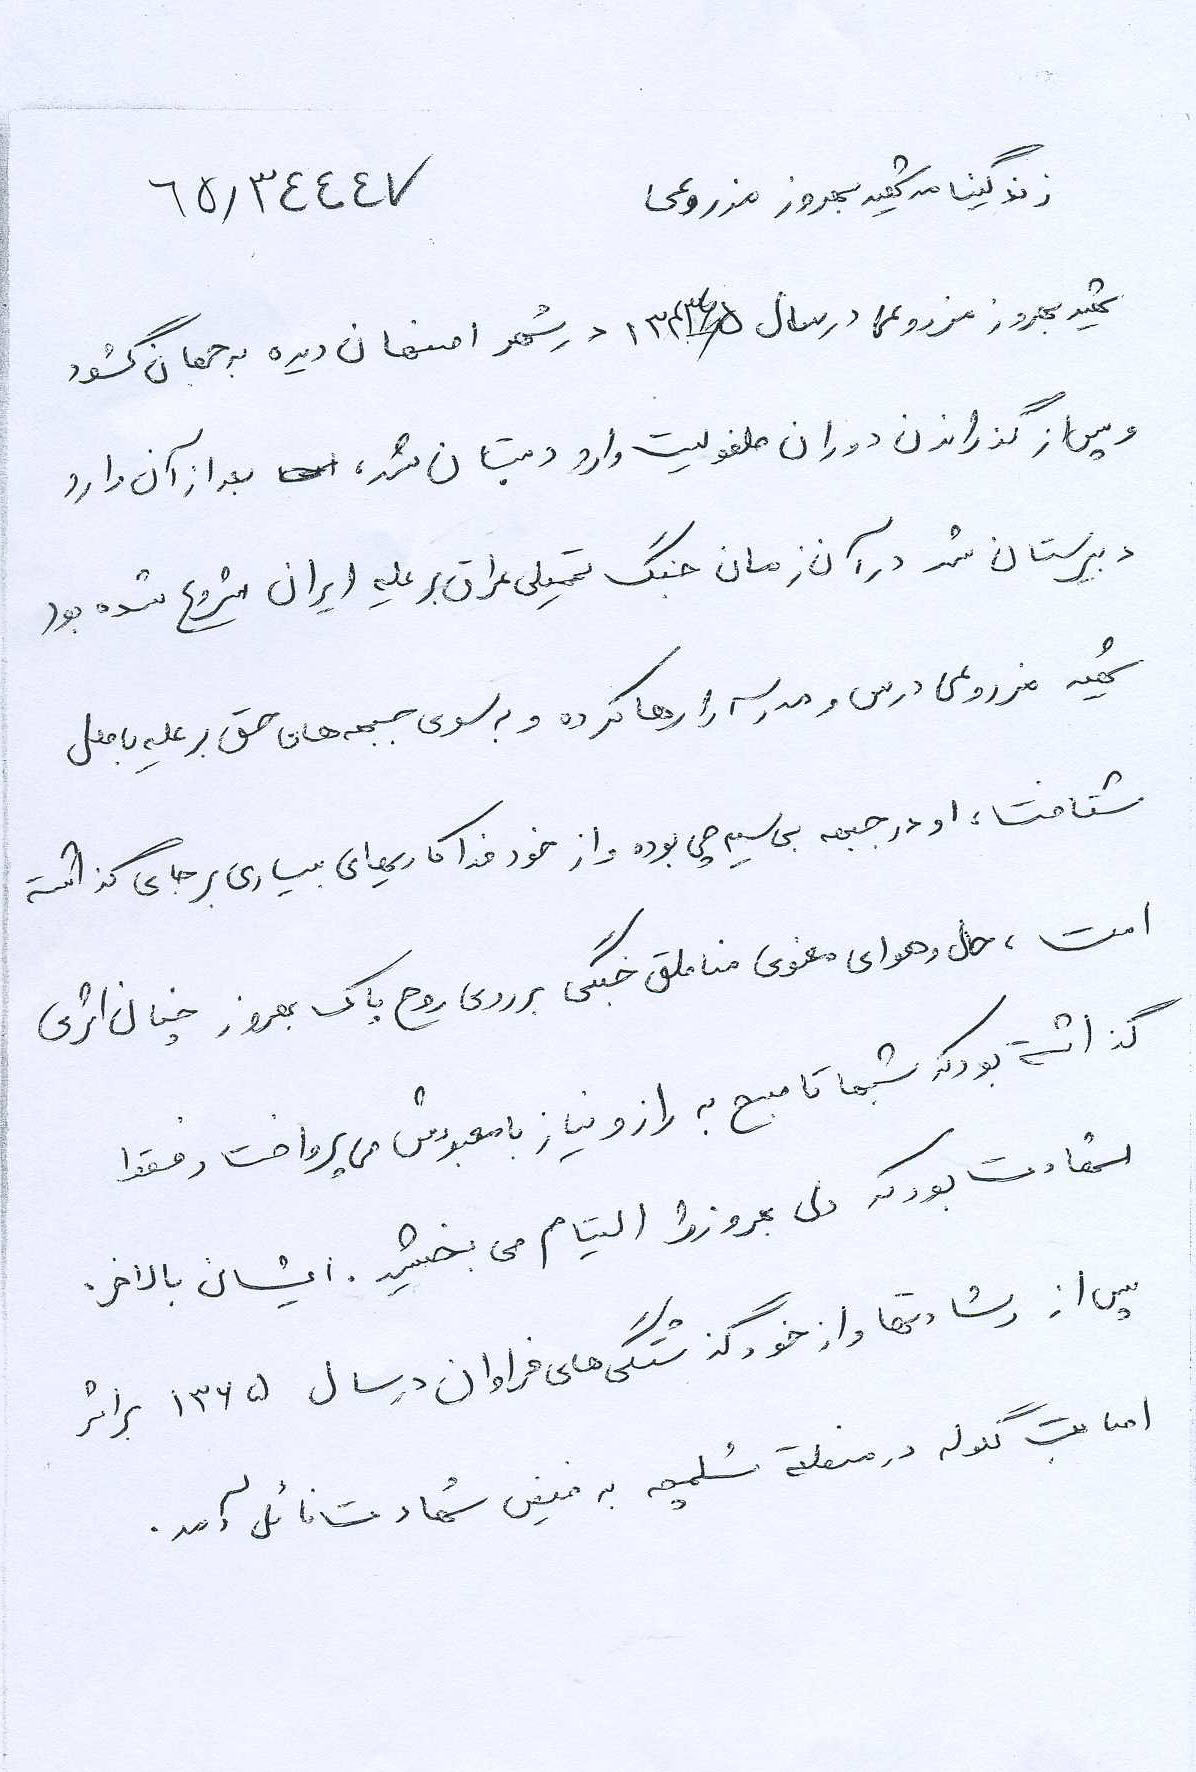 زندگینامه شهید بهروز مزروعی ٦٥/٣٤٤٤٧
شهید بهروز مزروعی در سال در شهر اصفهان دیده به جهان گشود
و پس از گذراندن دوران طفولیت وارد دبستان شد، بعد از آن وارد
دبیرستان شد در آن زمان جنگ تحمیلی عراق بر علیه ایران شروع شده بود
شهید مزروعی درس و مدرسه را رها کرده و به سوی جبهه های حق بر علیه باطل
شتافت، او در جبهه بی سیم چی بوده و از خود فداکاریهای بسیاری بر جای گذاشته
است، حال و هوای معنوی مناطق جنگی بر روی روح پاک بهروز چنان اثری
گذاشته بود که شبها تا صبح به راز و نیاز با معبودش می پرداخت و فقط
شهادت بود که دل بهروز را التیام می بخشید. ایشان بالاخره
پس از رشادتها و از خود گذشتگی های فراوان در سال ۱۳۶۵ بر اثر
اصابت گلوله در منطقه شلمچه به فیض شهادت نائل آمد.